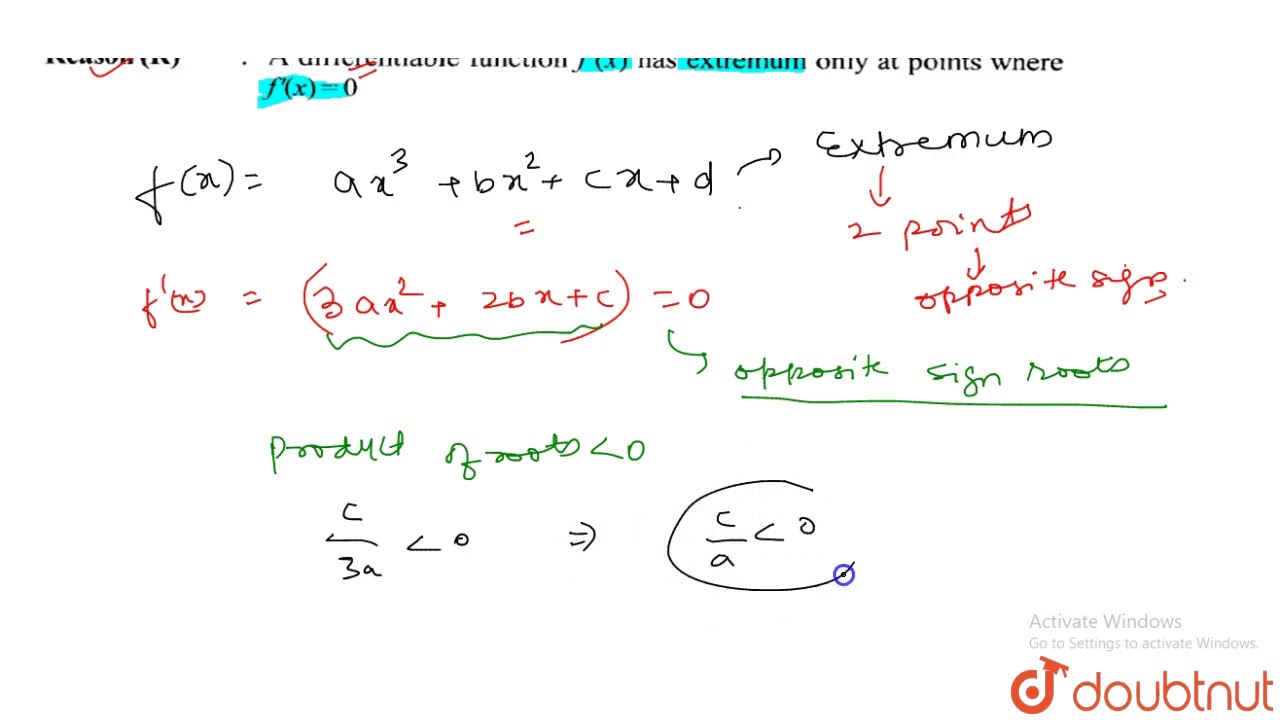 Reason (R) : A differentiable function f (x) has extremum only at points where
f'(x) = 0
f(x) = ax³ + bx² + cx + d → Extremum
=
↓
2 points
↓
opposite sign.
f'(x) = (3ax² + 2bx + c) = 0
opposite sign roots
product of roots < 0
c/3a < 0 ⇒ c/a < 0
Activate Windows
Go to Settings to activate Windows.
doubtnut